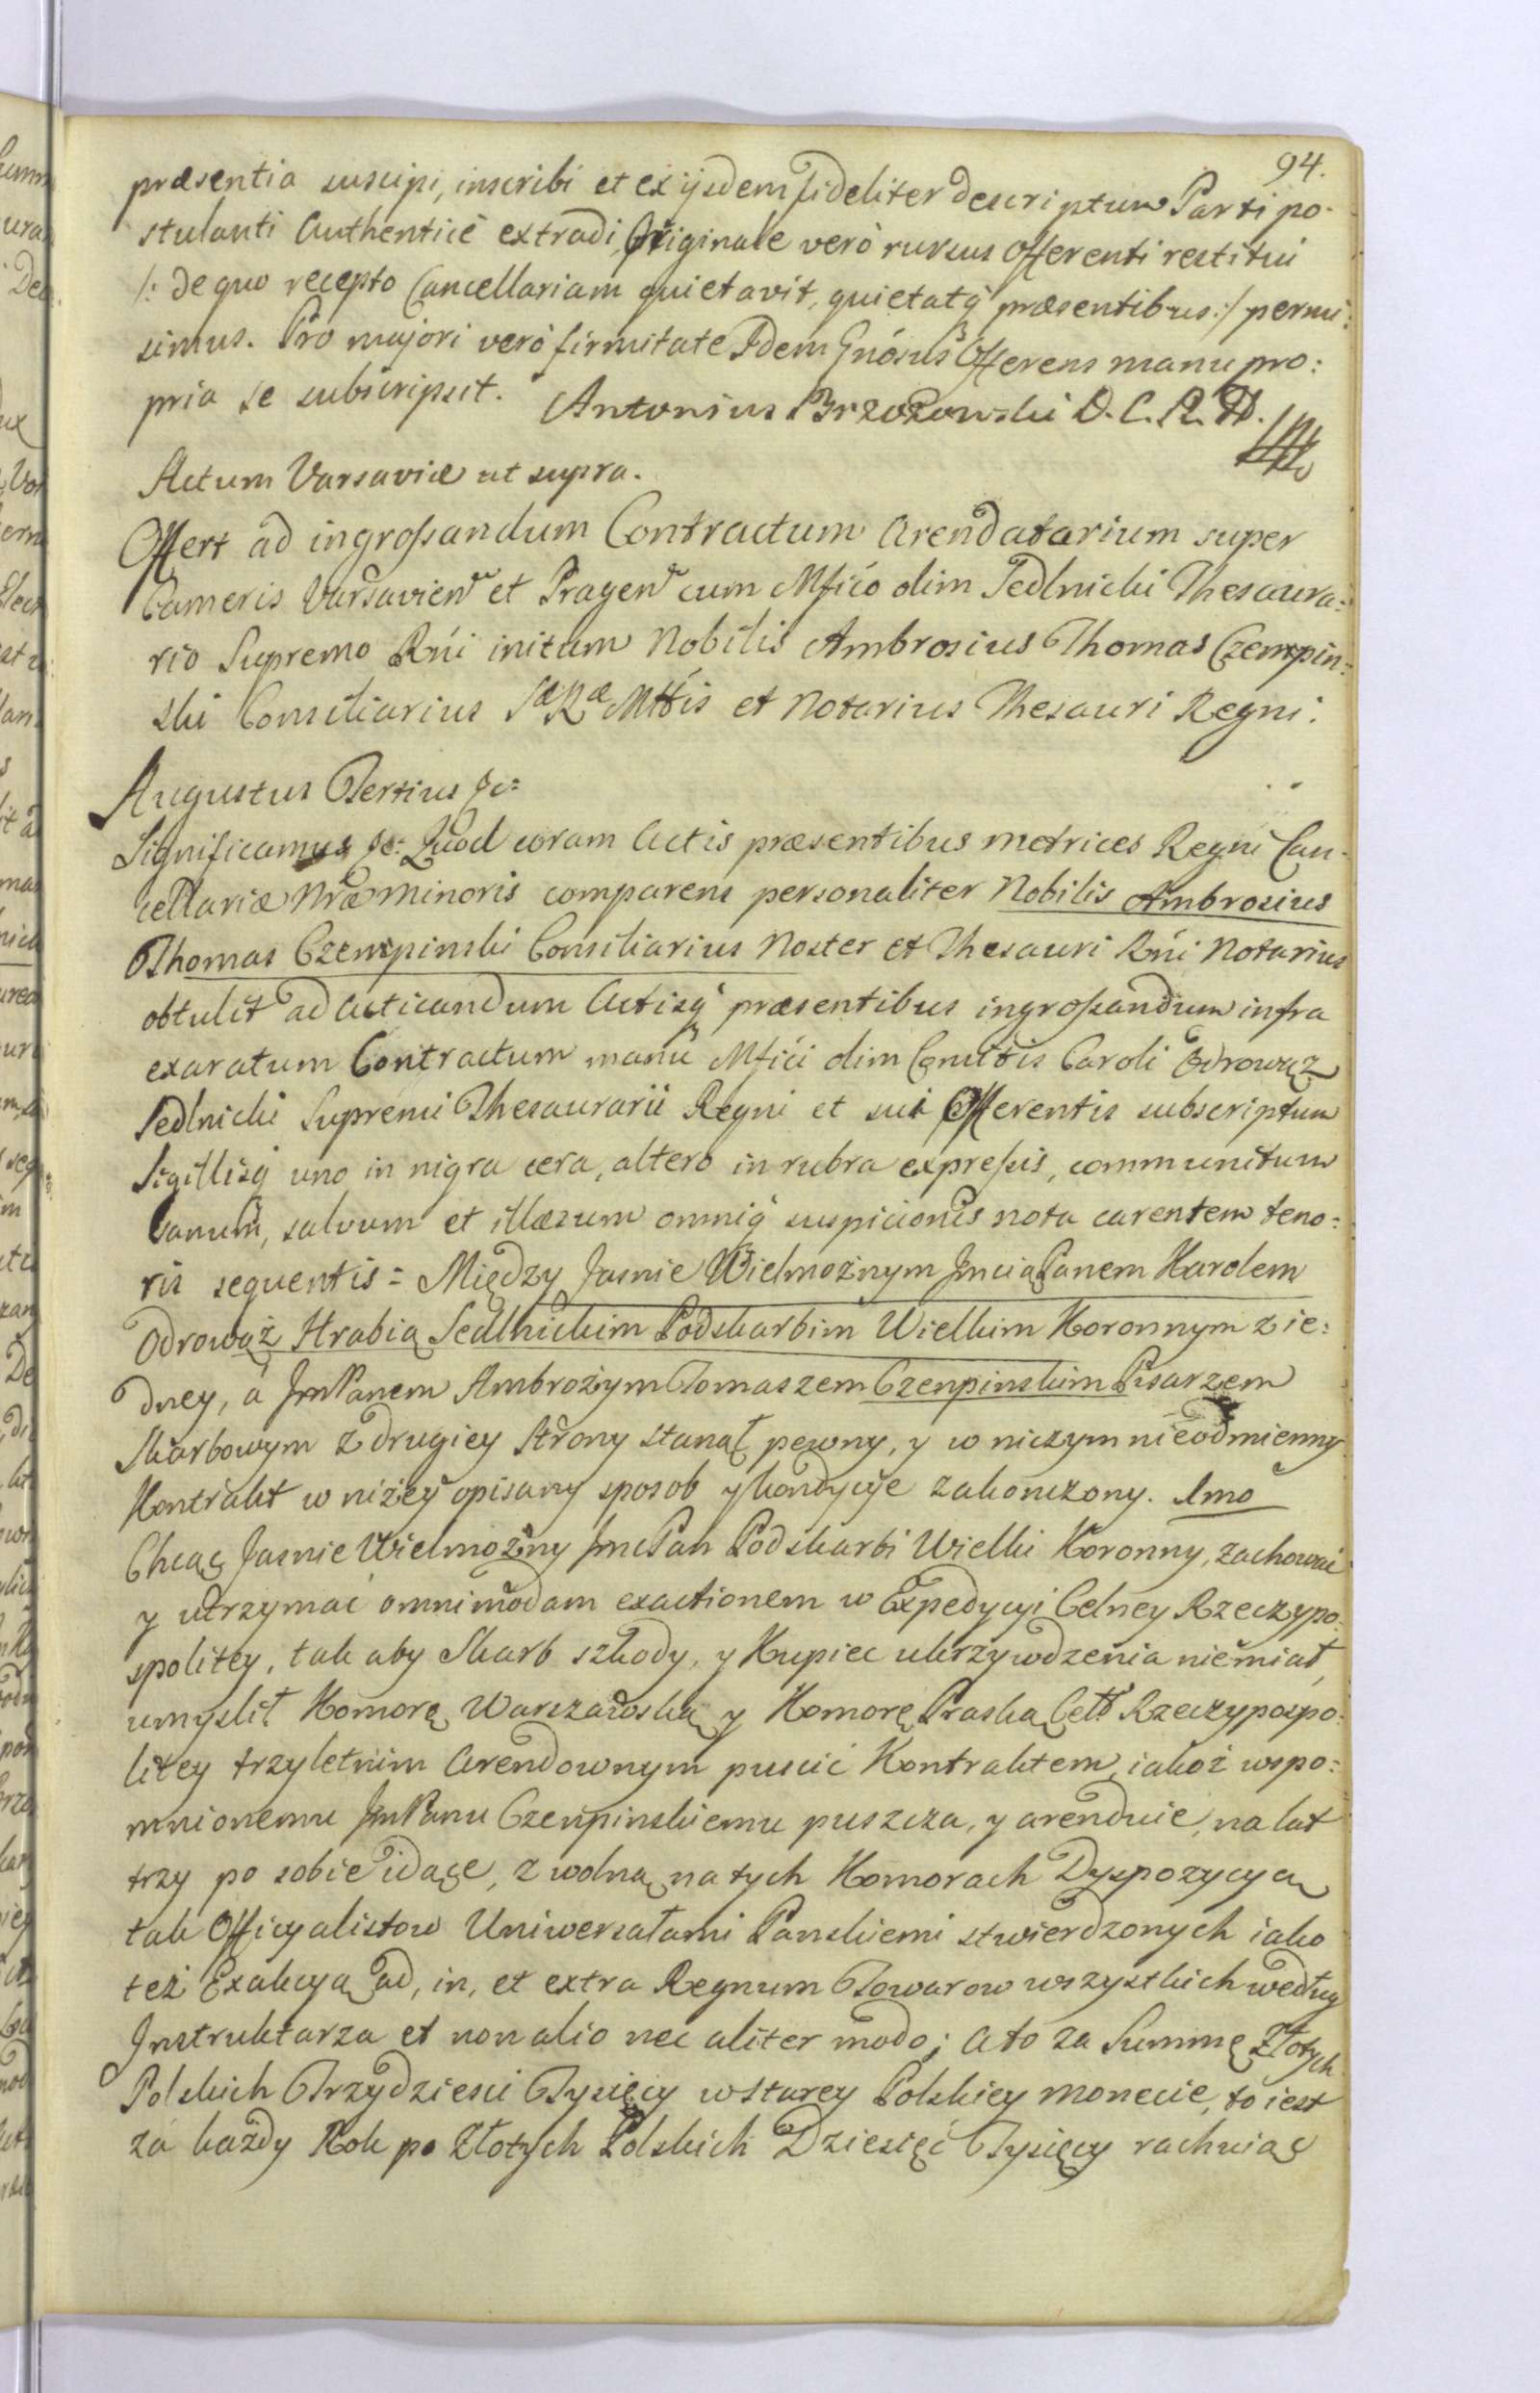 94.
præsentia suscipi, inscribi et ex ijsdem fideliter descriptum Parti po-
stulanti Authenticè extradi, Originale verò rursus Offerenti restitui
/: de quo recepto Cancellariam quietavit, quietatq̃ præsentibus :/ permi:
simus. Pro majori verò firmitate Idem Gnósus Offerens manu pro:
pria se subscripsit. Antonius Brzozowski D. C. R. M.
Actum Varsaviæ ut supra.
Offert ad ingrossandum Contractum Arendatarium super
Cameris Varsavien̄ et Pragen̄ cum Mfíco olim Sedlnicki Thesaura:
rio Supremo Rńi initum Nobilis Ambrosius Thomas Czempin:
ski Consiliarius Sæ Ræ Mttis et Notarius Thesauri Regni.
Augustus Tertius &c:
Significamus &c: Quod coram Actis præsentibus metrices Regni Can-
cellariæ Nræ Minoris comparens personaliter Nobilis Ambrosius
Thomas Czempinski Consiliarius Noster et Thesauri Rńi Notarius
obtulit ad acticandum Actisq̃ præsentibus ingrossandum infra
exaratum Contractum manu Mfíci olim Comitis Caroli Odrowąz
Sedlnicki Supremi Thesaurarii Regni et sui Offerentis subscriptum
Sigillisq̃ uno in nigra cera, altero in rubra expressis, communitum
sanum, salvum et illæsum omniq̃ suspicionis nota carentem teno:
ris sequentis = Między Jasnie Wielmożnym Jmcią Panem Karolem
Odrowąż Hrabią Sedlnickim Podskarbim Wielkim Koronnym z ie:
dney, á Jm Panem Ambrożym Tomaszem Czenpinskim Pisarzem
Skarbowym z drugiey Strony stanął pewny, y w niczym nieodmienny
Kontrakt w niżey opisany sposob y kondycye zakonczony. 1mo
Chcąc Jasnie Wielmożny Jmc Pan Podskarbi Wielki Koronny, zachować
y utrzymać omnimodam exactionem w Expedycyi Celney Rzeczypo:
spolitey, tak aby Skarb szkody, y Kupiec ukrzywdzenia niemiał,
umyslił Komorę Warszawską y Komorę Praską Cełł Rzeczypospo:
litey trzyletnim Arendownym puscić Kontraktem, iakoż wspo:
mnionemu Jm Panu Czenpinskiemu puszcza, y arenduie, na lat
trzy po sobie idące, z wolną na tych Komorach Dyspozycyą
tak Officyalistow Uniwersałami Panskiemi stwierdzonych iako
też Exakcyą ad, in, et extra Regnum Towarow wszystkich według
Instruktarza et non alio nec aliter modo; A to za Summę Złotych
Polskich Trzydziesci Tysięcy w starey Polskiey monecie, to iest
zá każdy Rok po Złotych Polskich Dziesięć Tysięcy rachuiąc